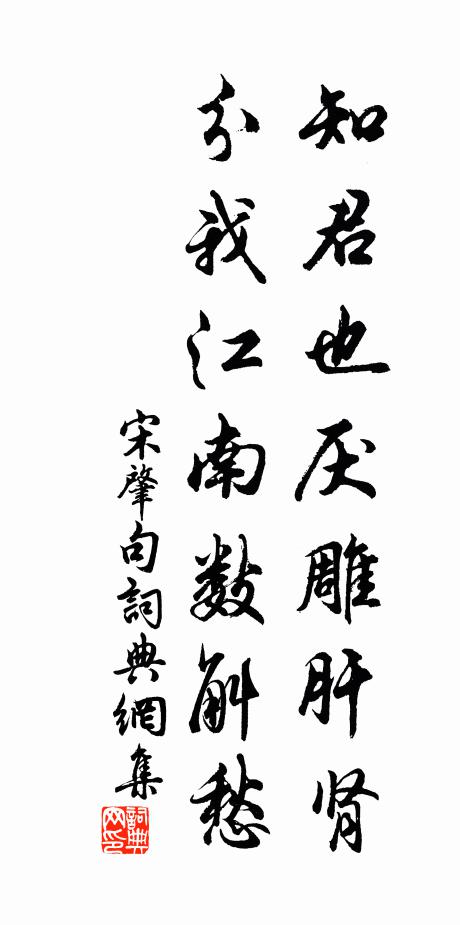 知君也厌雕肝肾
分我江南数斛愁
宋肇句詞典網集
詞典网印